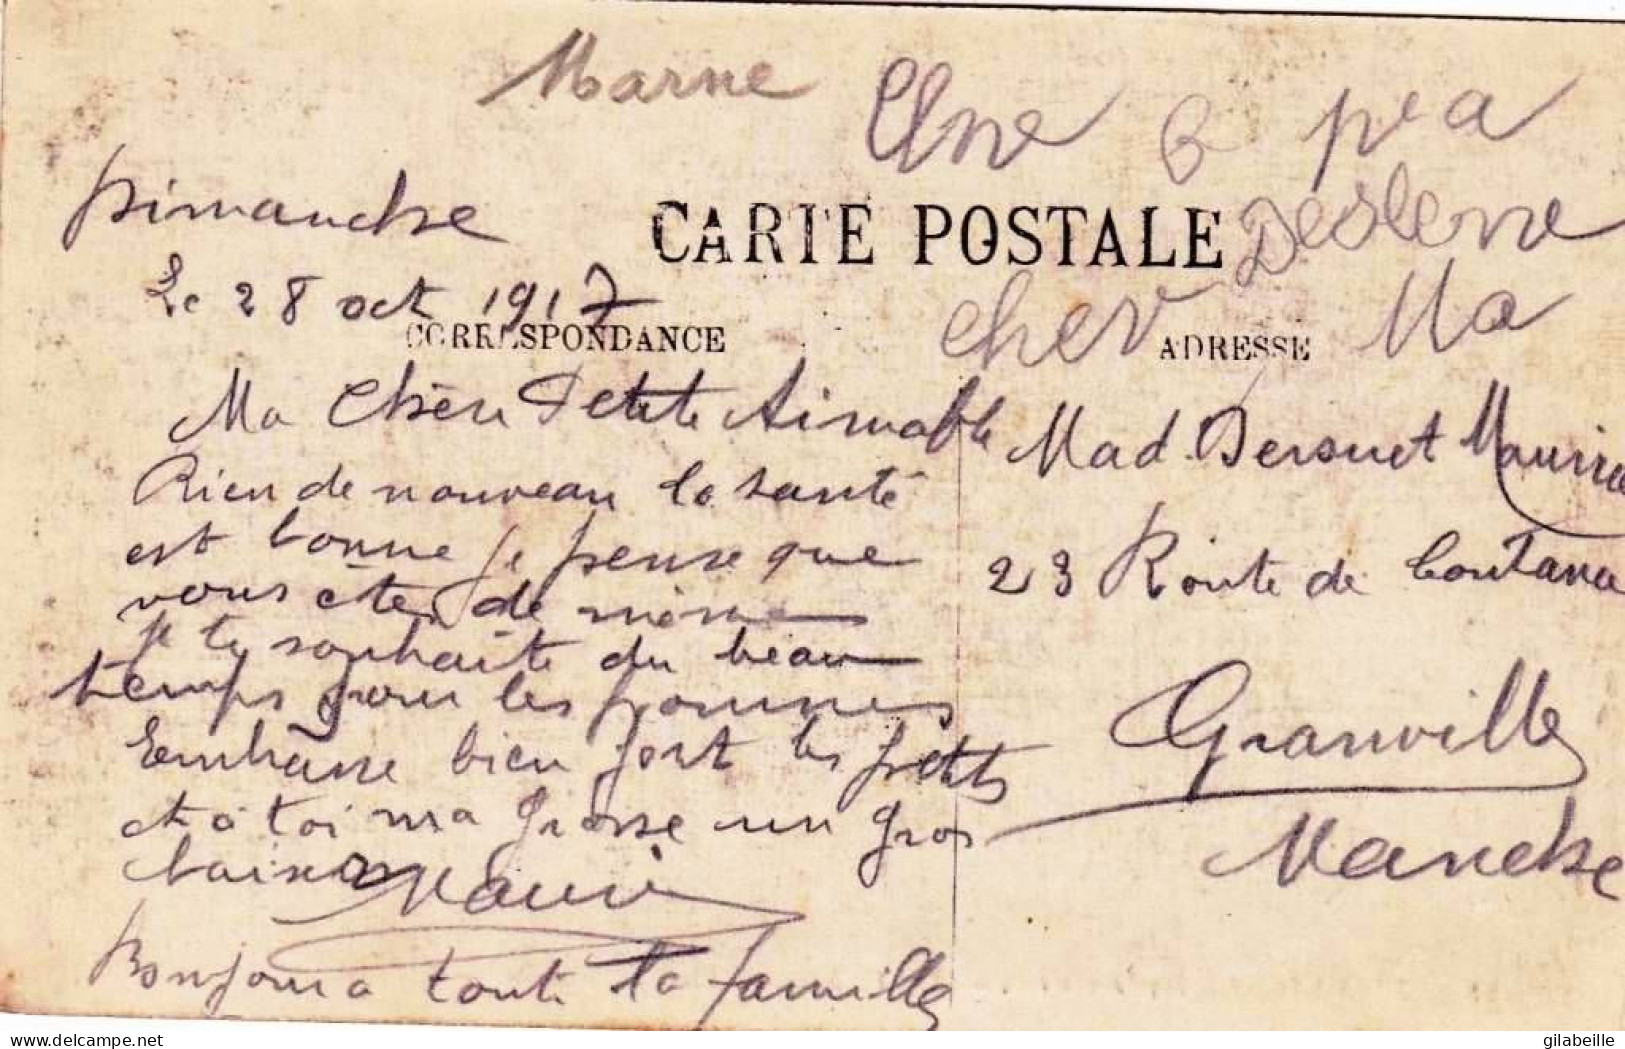 Marne
Une
Dimanche
CARTE POSTALE
Le 28 oct 1917
chev Ma
CORRESPONDANCE
ADRESSE
Ma Chère Petite Aimable
Rien de nouveau la santé
est bonne je pense que
vous êtes de même
je te souhaite du beau
temps pour les pommes
Embrasse bien fort les petits
et à toi ma grosse un gros
baiser Mauri
Bonjour a toute la famille
Mad. Maurice
23 Route de Coutance
Granville
Manche
delcampe.net
gilabeille